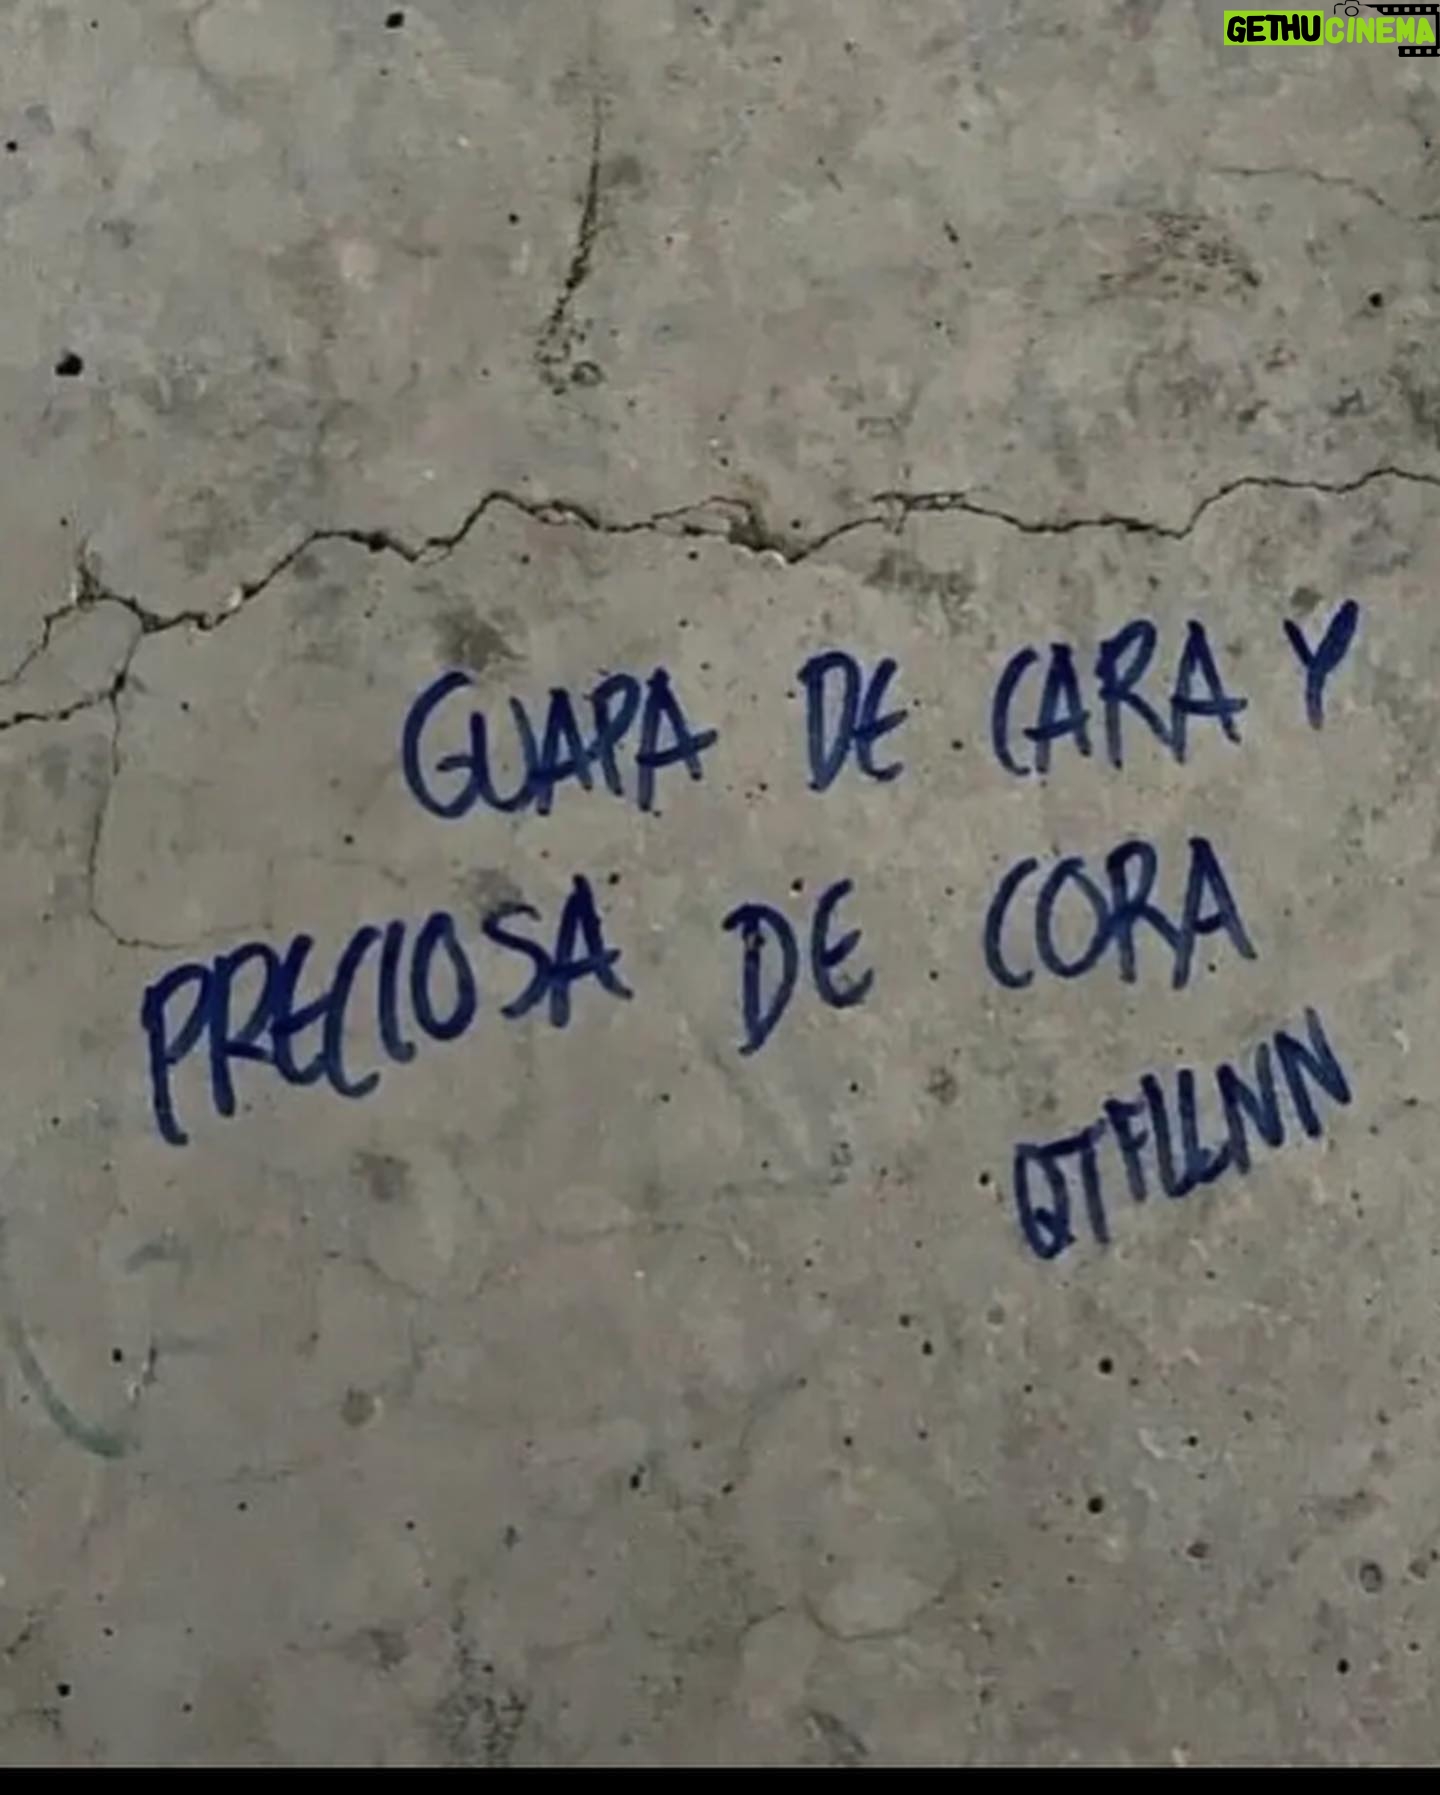 GETHUCINEMA
GUAPA DE CARA Y
PRECIOSA DE CORA
QTFLLNN